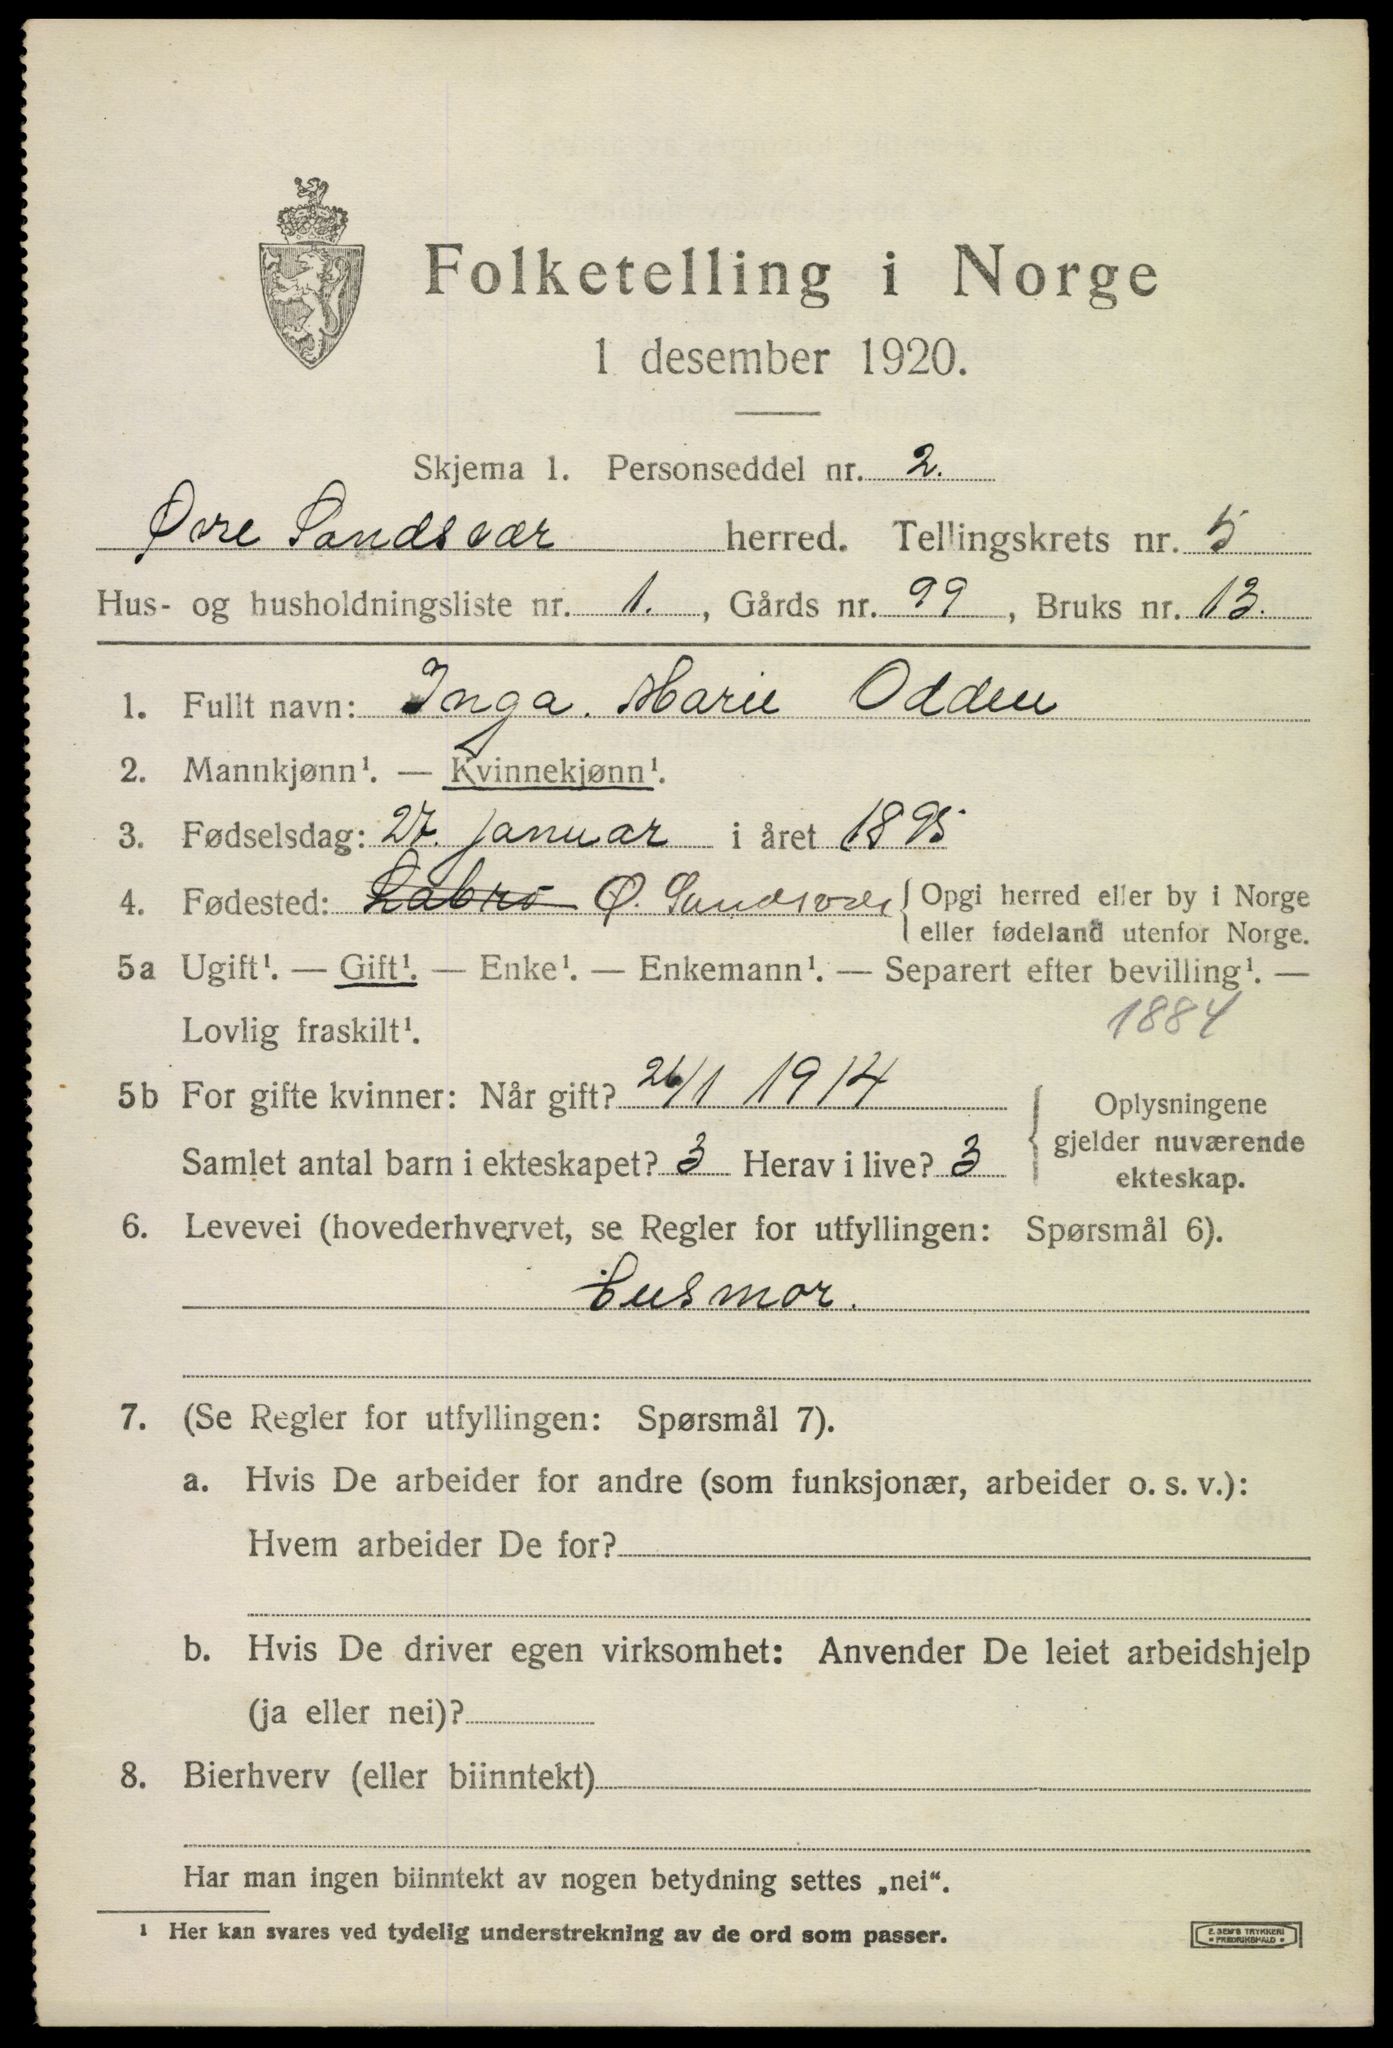 Folketelling i Norge
1 desember 1920.
Skjema 1. Personseddel nr. 2.
Øvre Sandsvær herred. Tellingskrets nr. 5
Hus- og husholdningsliste nr. 1., Gårds nr. 99, Bruks nr. 13.
1. Fullt navn: Inga. Marie Odden
2. Mannkjønn¹. — Kvinnekjønn¹.
3. Fødselsdag: 27. januar i året 1895
4. Fødested: Labro Ø. Sandsvær { Opgi herred eller by i Norge
eller fødeland utenfor Norge.
5a Ugift¹. — Gift¹. — Enke¹. — Enkemann¹. — Separert efter bevilling¹. —
Lovlig fraskilt¹. 1884
5b For gifte kvinner: Når gift? 26/1 1914 { Oplysningene
gjelder nuværende
Samlet antal barn i ekteskapet? 3 Herav i live? 3 ekteskap.
6. Levevei (hovederhvervet, se Regler for utfyllingen: Spørsmål 6).
Husmor.
7. (Se Regler for utfyllingen: Spørsmål 7).
a. Hvis De arbeider for andre (som funksjonær, arbeider o. s. v.):
Hvem arbeider De for?
b. Hvis De driver egen virksomhet: Anvender De leiet arbeidshjelp
(ja eller nei)?
8. Bierhverv (eller biinntekt)
Har man ingen biinntekt av nogen betydning settes „nei“.
¹ Her kan svares ved tydelig understrekning av de ord som passer.
E. SEM'S TRYKKERI
• FREDRIKSHALD •